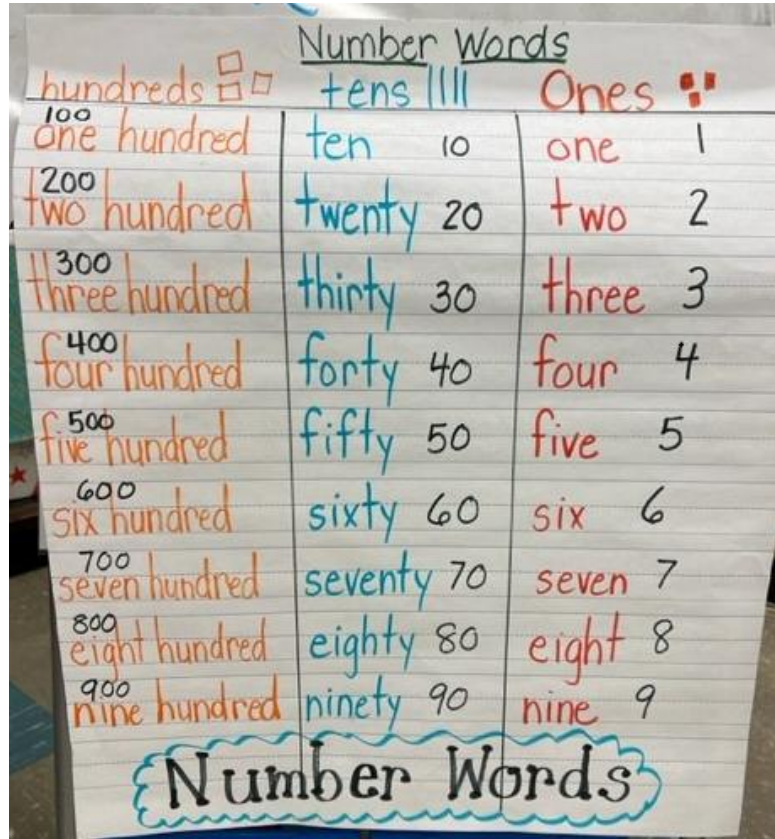 Number Words
hundreds tens Ones
100
one hundred ten 10 one 1
200
two hundred twenty 20 two 2
300
three hundred thirty 30 three 3
400
four hundred forty 40 four 4
500
five hundred fifty 50 five 5
600
six hundred sixty 60 six 6
700
seven hundred seventy 70 seven 7
800
eight hundred eighty 80 eight 8
900
nine hundred ninety 90 nine 9
Number Words